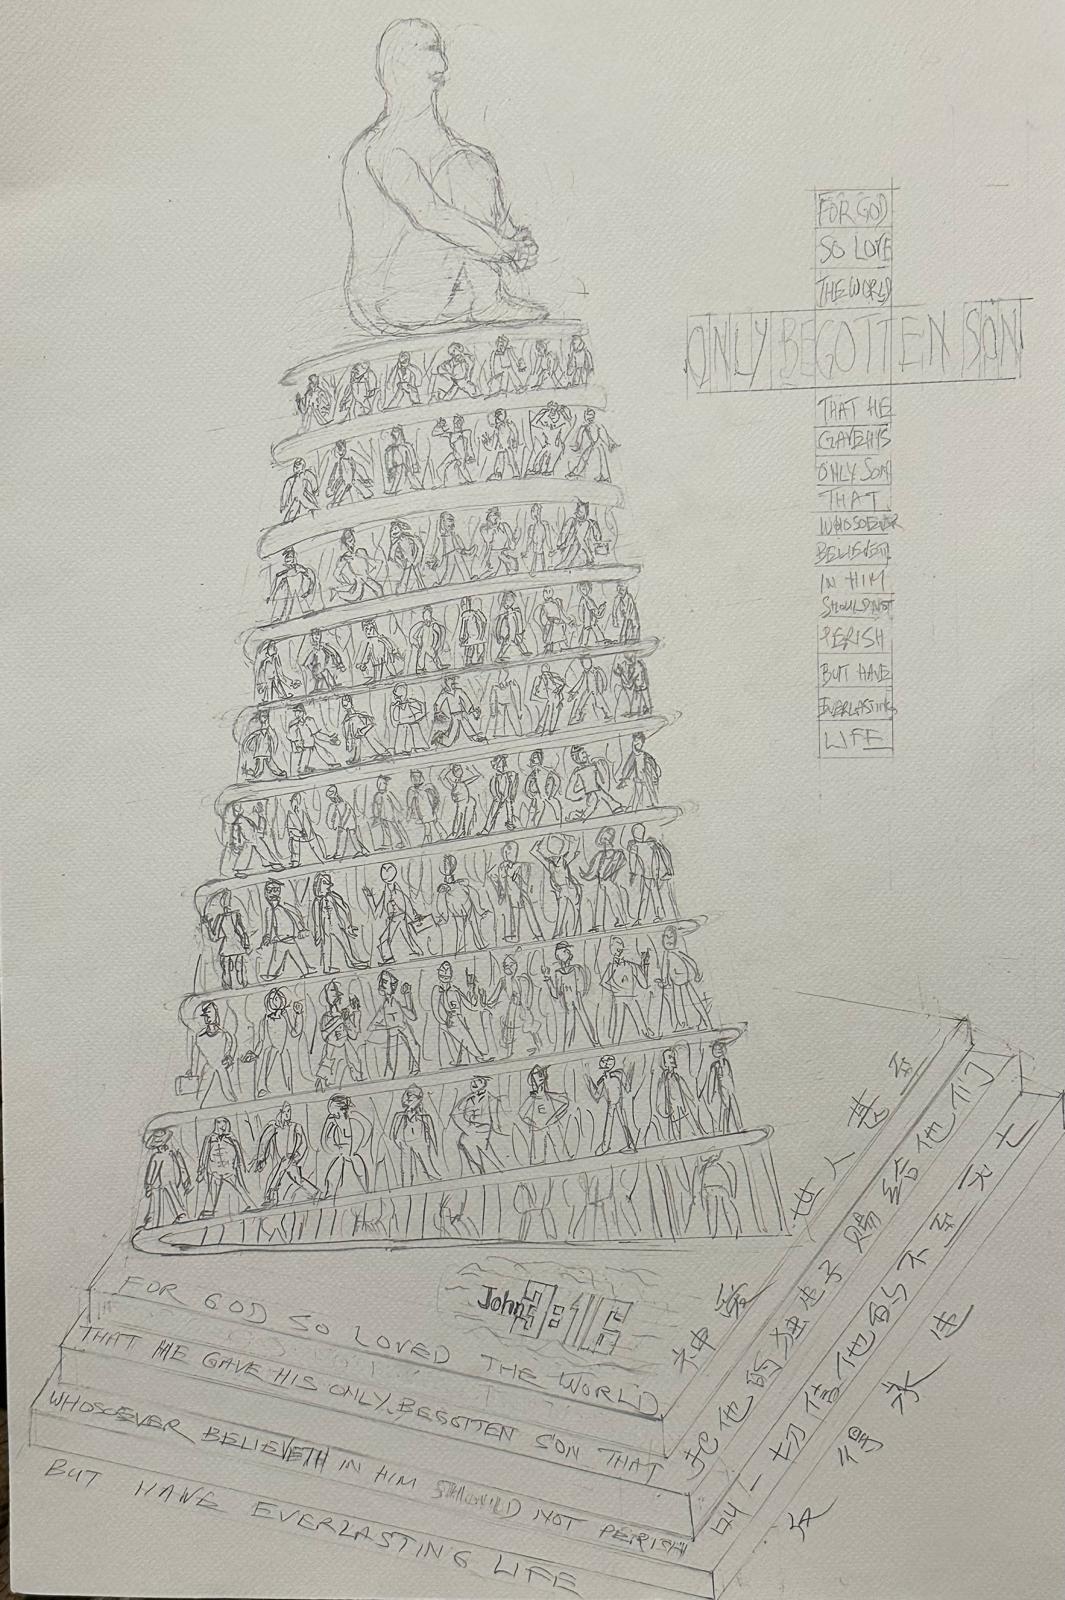 FOR GOD
SO LOVE
THE WORLD
ONLY BEGOTTEN SON
THAT HE
GAVE HIS
ONLY SON
THAT
WHOSOEVER
BELIEVETH
IN HIM
SHOULD NOT
PERISH
BUT HAVE
EVERLASTING
LIFE
John 3:16
FOR GOD SO LOVED THE WORLD
THAT HE GAVE HIS ONLY BEGOTTEN SON THAT
WHOSOEVER BELIEVETH IN HIM SHOULD NOT PERISH
BUT HAVE EVERLASTING LIFE
神爱世人甚至
把他的独生子赐给他们
叫一切信他的不至灭亡
反得永生